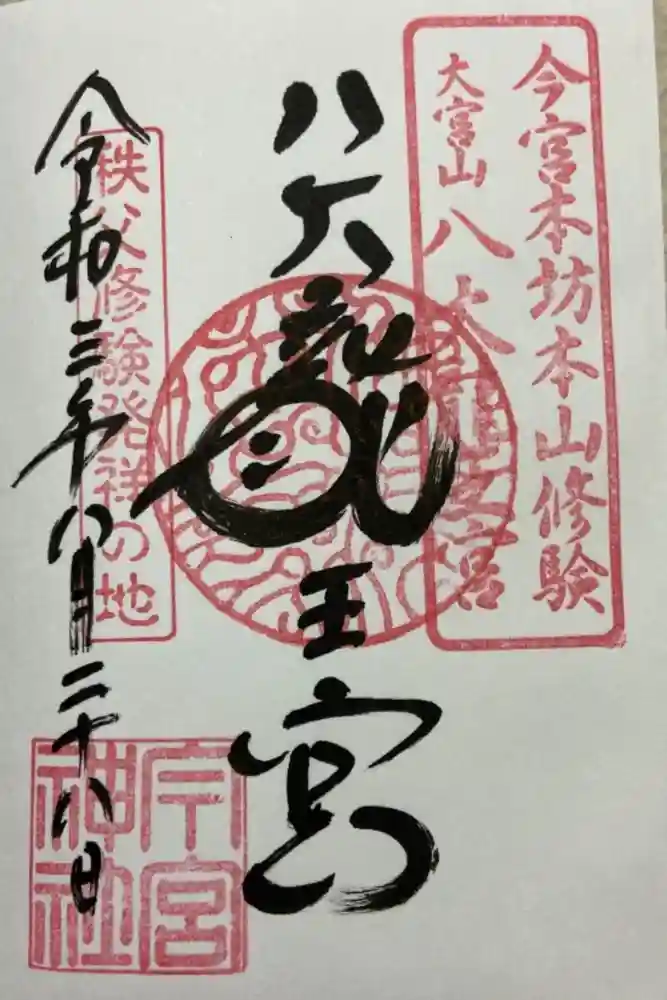 今宮本坊本山修験
大宮山八大龍王宮
八大龍王宮
秩父修験発祥の地
令和三年八月二十八日
今宮
神社